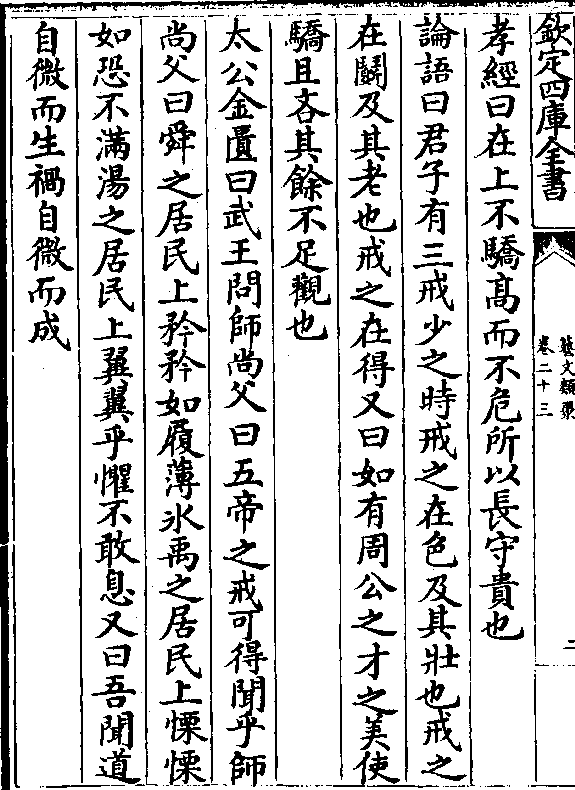 欽定四庫全書
藝文類聚
卷二十三
二
孝經曰在上不驕髙而不危所以長守貴也
論語曰君子有三戒少之時戒之在色及其壯也戒之
在鬭及其老也戒之在得又曰如有周公之才之美使
驕且吝其餘不足觀也
太公金匱曰武王問師尚父曰五帝之戒可得聞乎師
尚父曰舜之居民上矜矜如履薄氷禹之居民上慄慄
如恐不滿湯之居民上翼翼乎懼不敢息又曰吾聞道
自微而生禍自微而成